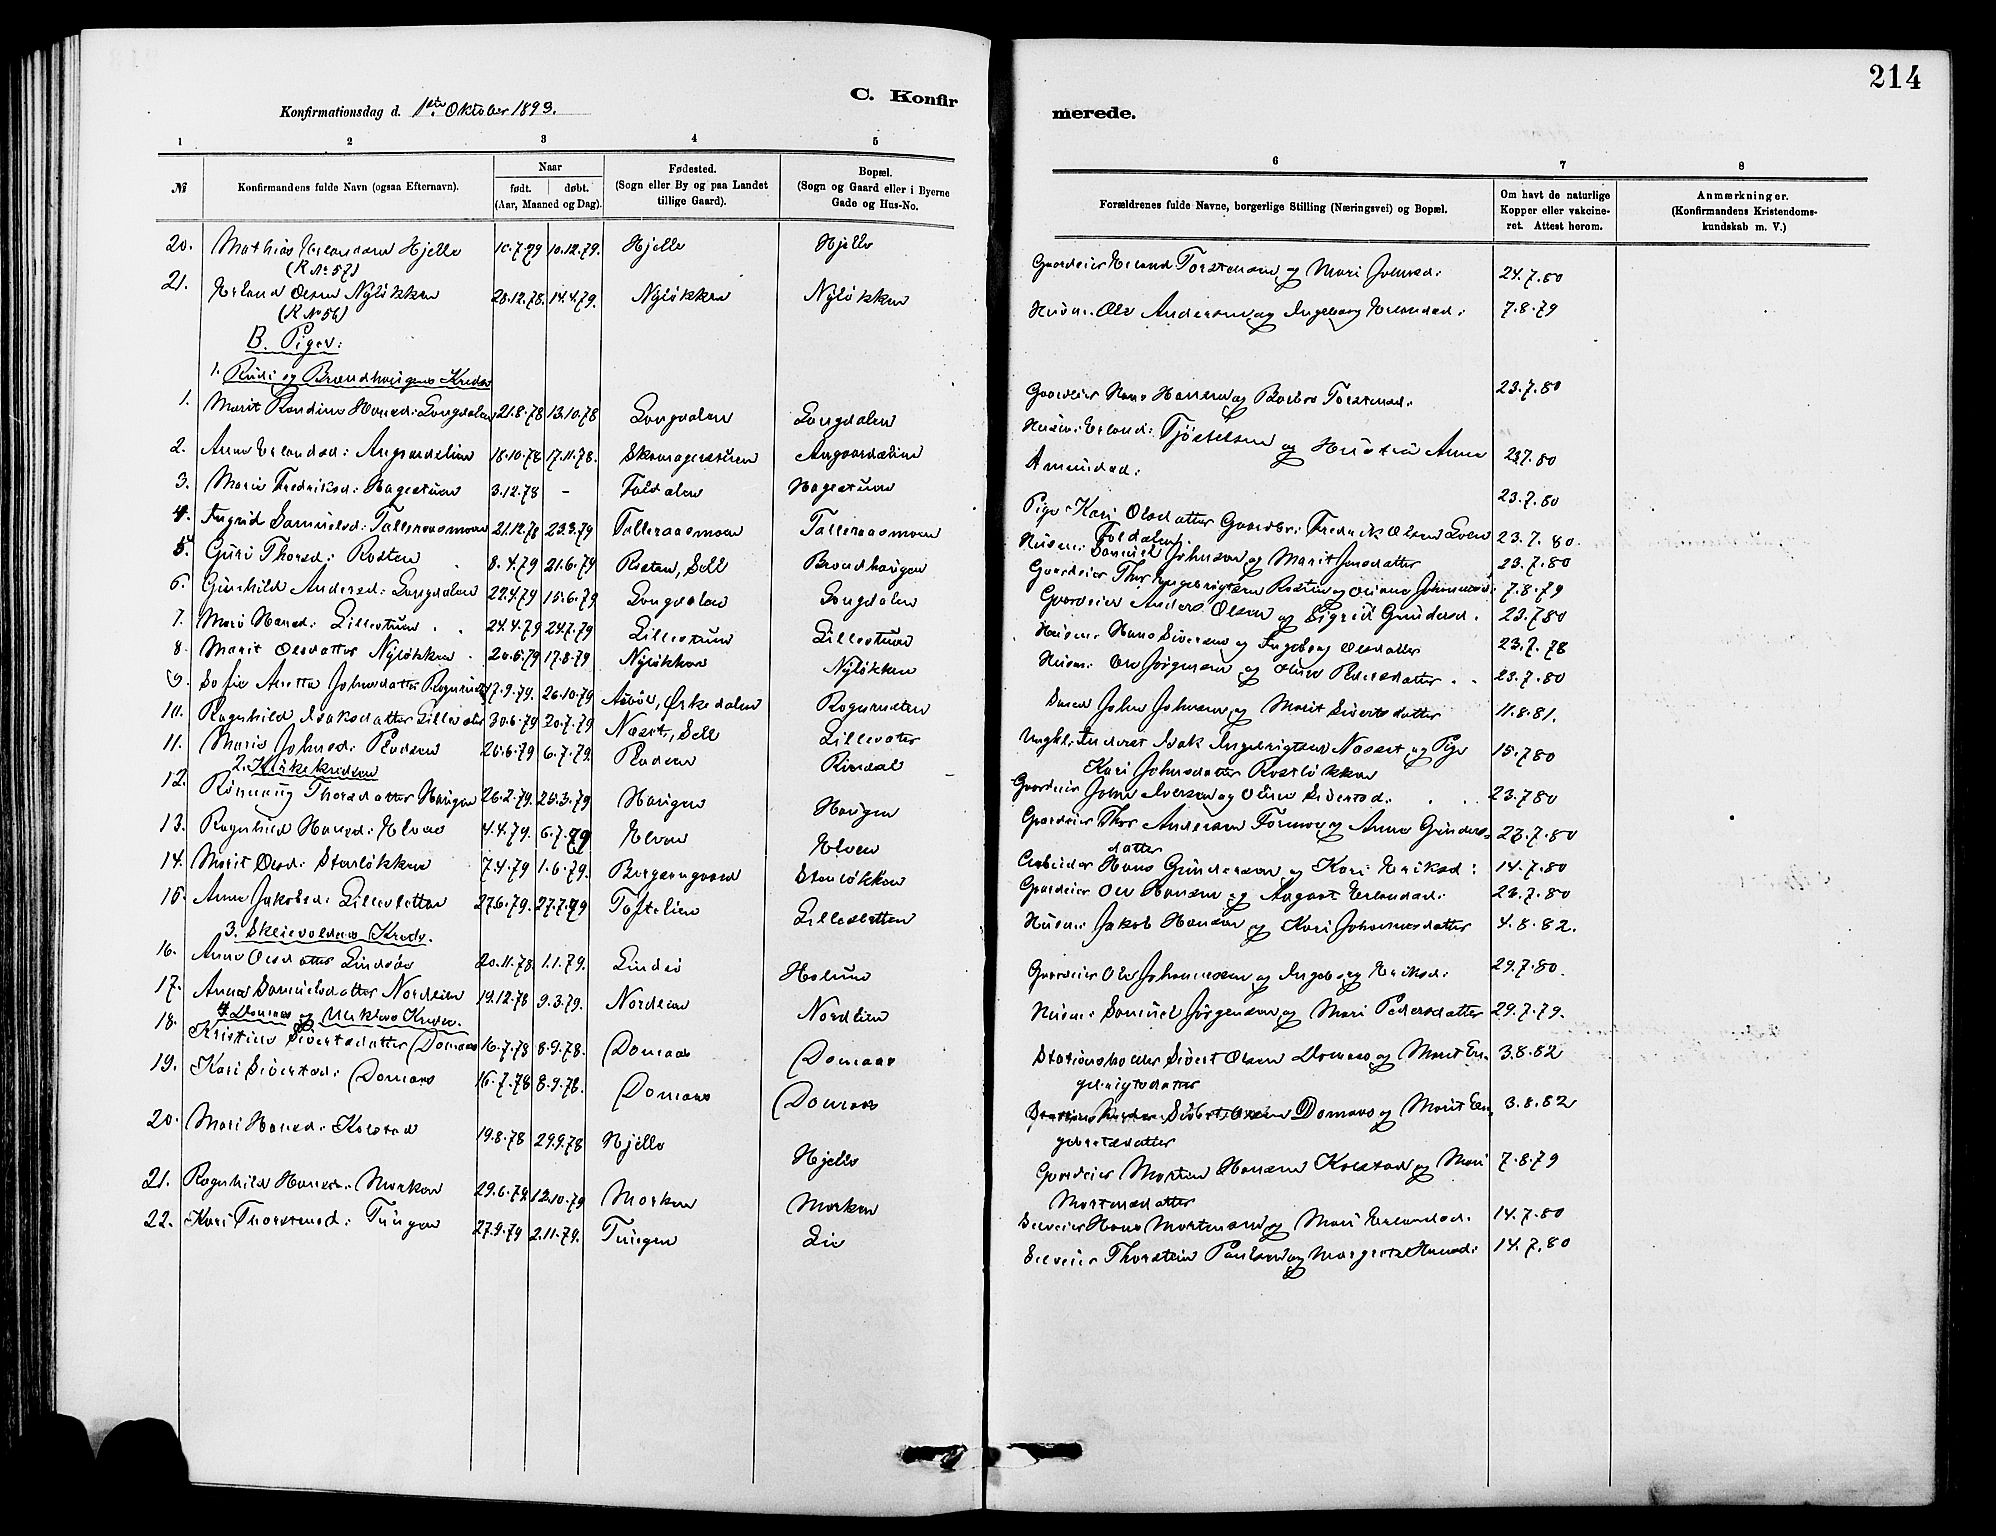 214
C. Konfir
merede.
Konfirmationsdag d. 1ste Oktober 1893.
1 2 3 4 5
6 7 8
№
Konfirmandens fulde Navn (ogsaa Efternavn).
Naar
født. døbt.
(Aar, Maaned og Dag).
Fødested.
(Sogn eller By og paa Landet
tillige Gaard).
Bopæl.
(Sogn og Gaard eller i Byerne
Gade og Hus-No.
Forældrenes fulde Navne, borgerlige Stilling (Næringsvei) og Bopæl.
Om havt de naturlige
Kopper eller vakcine-
ret. Attest herom.
Anmærkninger.
(Konfirmandens Kristendoms-
kundskab m. V.)
20. Mathias Erlandsen Hjelle 10.12.79. Hjelle Hjelle Gaardeier Erland Torstensen og Mari Johnsd: 24.7.80
(K № 57)
21. Erland Olsen Nyløkken 14.4.79. Nyløkken Nyløkken Husm: Ole Andersen og Ingeborg Erlandsd: 7.8.79
(K № 56)
B. Piger:
1. Rudi og Brændhaugens Kreds
1. Marit Hansd: Longdalen 21.8.78 13.10.78 Longdalen Longdalen Gaardeier Hans Hansen og Barbro Torstensd: 23.7.80
2. Anna Erlandsd: Angaardslien 18.10.78 17.11.78. Angaardslien Husm: Erland: Tjøstelsen og Hustru Anna
Amundsd: 23.7.80
3. Marie Fredriksd: Hagestuen 3.12.78 - Foldalen Hagestuen Pige Kari Olsdatter Gaardbr: Fredrik Olsen 23.7.80
Foldalen
4. Ingrid Samuelsd: Talleraasmoen 21.12.78 23.3.79 Talleraasmoen Talleraasmoen Husm: Samuel Johnsen og Marit Jensdatter 23.7.80.
5. Guri Thorsd: Rosten 8.4.79 21.6.79 Rosten, Sell Brændhaugen Gaardeier Thor Ingebrigtsen Rosten og 23.7.80
6. Gunhild Andersd: Longdalen 22.4.79 15.6.79 Longdalen Longdalen Gaardeier Anders Olsen og Sigrid Gundersd. 7.8.79
7. Mari Hansd: Lillestuen 24.4.79 24.7.79 Lillestuen Lillestuen Husm: Hans Siversen og Ingeborg Olsdatter 23.7.80
8. Marit Olsdatter Nyløkken 17.8.79 Nyløkken Nyløkken Husm: Ole Jørgensen og Pedersdatter 23.7.78
9. Sofie Anetta Johnsdatter 17.9.79. 26.10.79 Ørkedalen John Johnsen og Marit Sivertsdatter 23.7.80
10. Ragnhild Isaksdatter 30.6.79 20.7.79 Næset, Sell Ungkl: Inderst Isak Ingebrigtsen Næset og Pige 11.8.81.
Kari Johnsdatter Rostløkken
11. Marie Johnsd: 6.7.79. Gaardeier John Iversen og Sivertsd: 15.7.80
2. Kirkekredsen
12. Rønnaug Thorsdatter Haugen 26.2.79. 25.3.79 Haugen Haugen Gaardeier Thor Andersen Formo og Anna Gunders- 23.7.80
datter
13. Ragnhild Hansd: Elven 4.4.79. 6.7.79 Elven Elven Arbeider Hans Gundersen og Kari Eriksd: 23.7.80
14. Marit Olsd: Stenløkken 7.4.79 1.6.79. Bergsengaard Stenløkken Gaardeier Ole Hansen og Aagaat Erlandsd: 14.7.80
15. Anna Jakobsd: Lillesletten 27.6.79. 27.7.79 Toftelien Lillesletten Husm: Jakob Hansen og Kari Johannesdatter 23.7.80
4.8.82.
3. Skievoldens Kreds.
16. Anna Olsdatter Lindsøe 20.11.78. 1.1.79. Gaardeier Ole Johannessen og Ingeborg Eriksd: 29.7.80.
17. Anna Samuelsdatter Nordlien 19.12.78 9.3.79. Nordlien Nordlien Husm: Samuel Jørgensen og Mari Pedersdatter 29.7.79.
4. Domaas og Kreds.
18. Kristine Sivertsdatter Domaas 16.7.78 8.9.78. Domaas Domaas Stationsholder Sivert Olsen Domaas og Marit En-
gebrigtsdatter 3.8.82
19. Kari Sivertsd: Domaas 16.7.78 8.9.78. Domaas Domaas Domaas og Marit En-
gebretsdatter 3.8.82
20. Mari Hansd: Kolstad 19.8.78 29.9.78 Hjelle Hjelle Gaardeier Morten Hansen Kolstad og Mari
Mortensdatter 7.8.79
21. Ragnhild Hansd: Morken 29.6.79. 12.10.79 Morken Morken Selveier Hans Mortensen og Mari Erlandsd. 14.7.80
22. Kari Thorstensd: Tungen 27.9.79 2.11.79. Tungen Lie Selveier Thorstein Paulsen og Hansd: 14.7.80